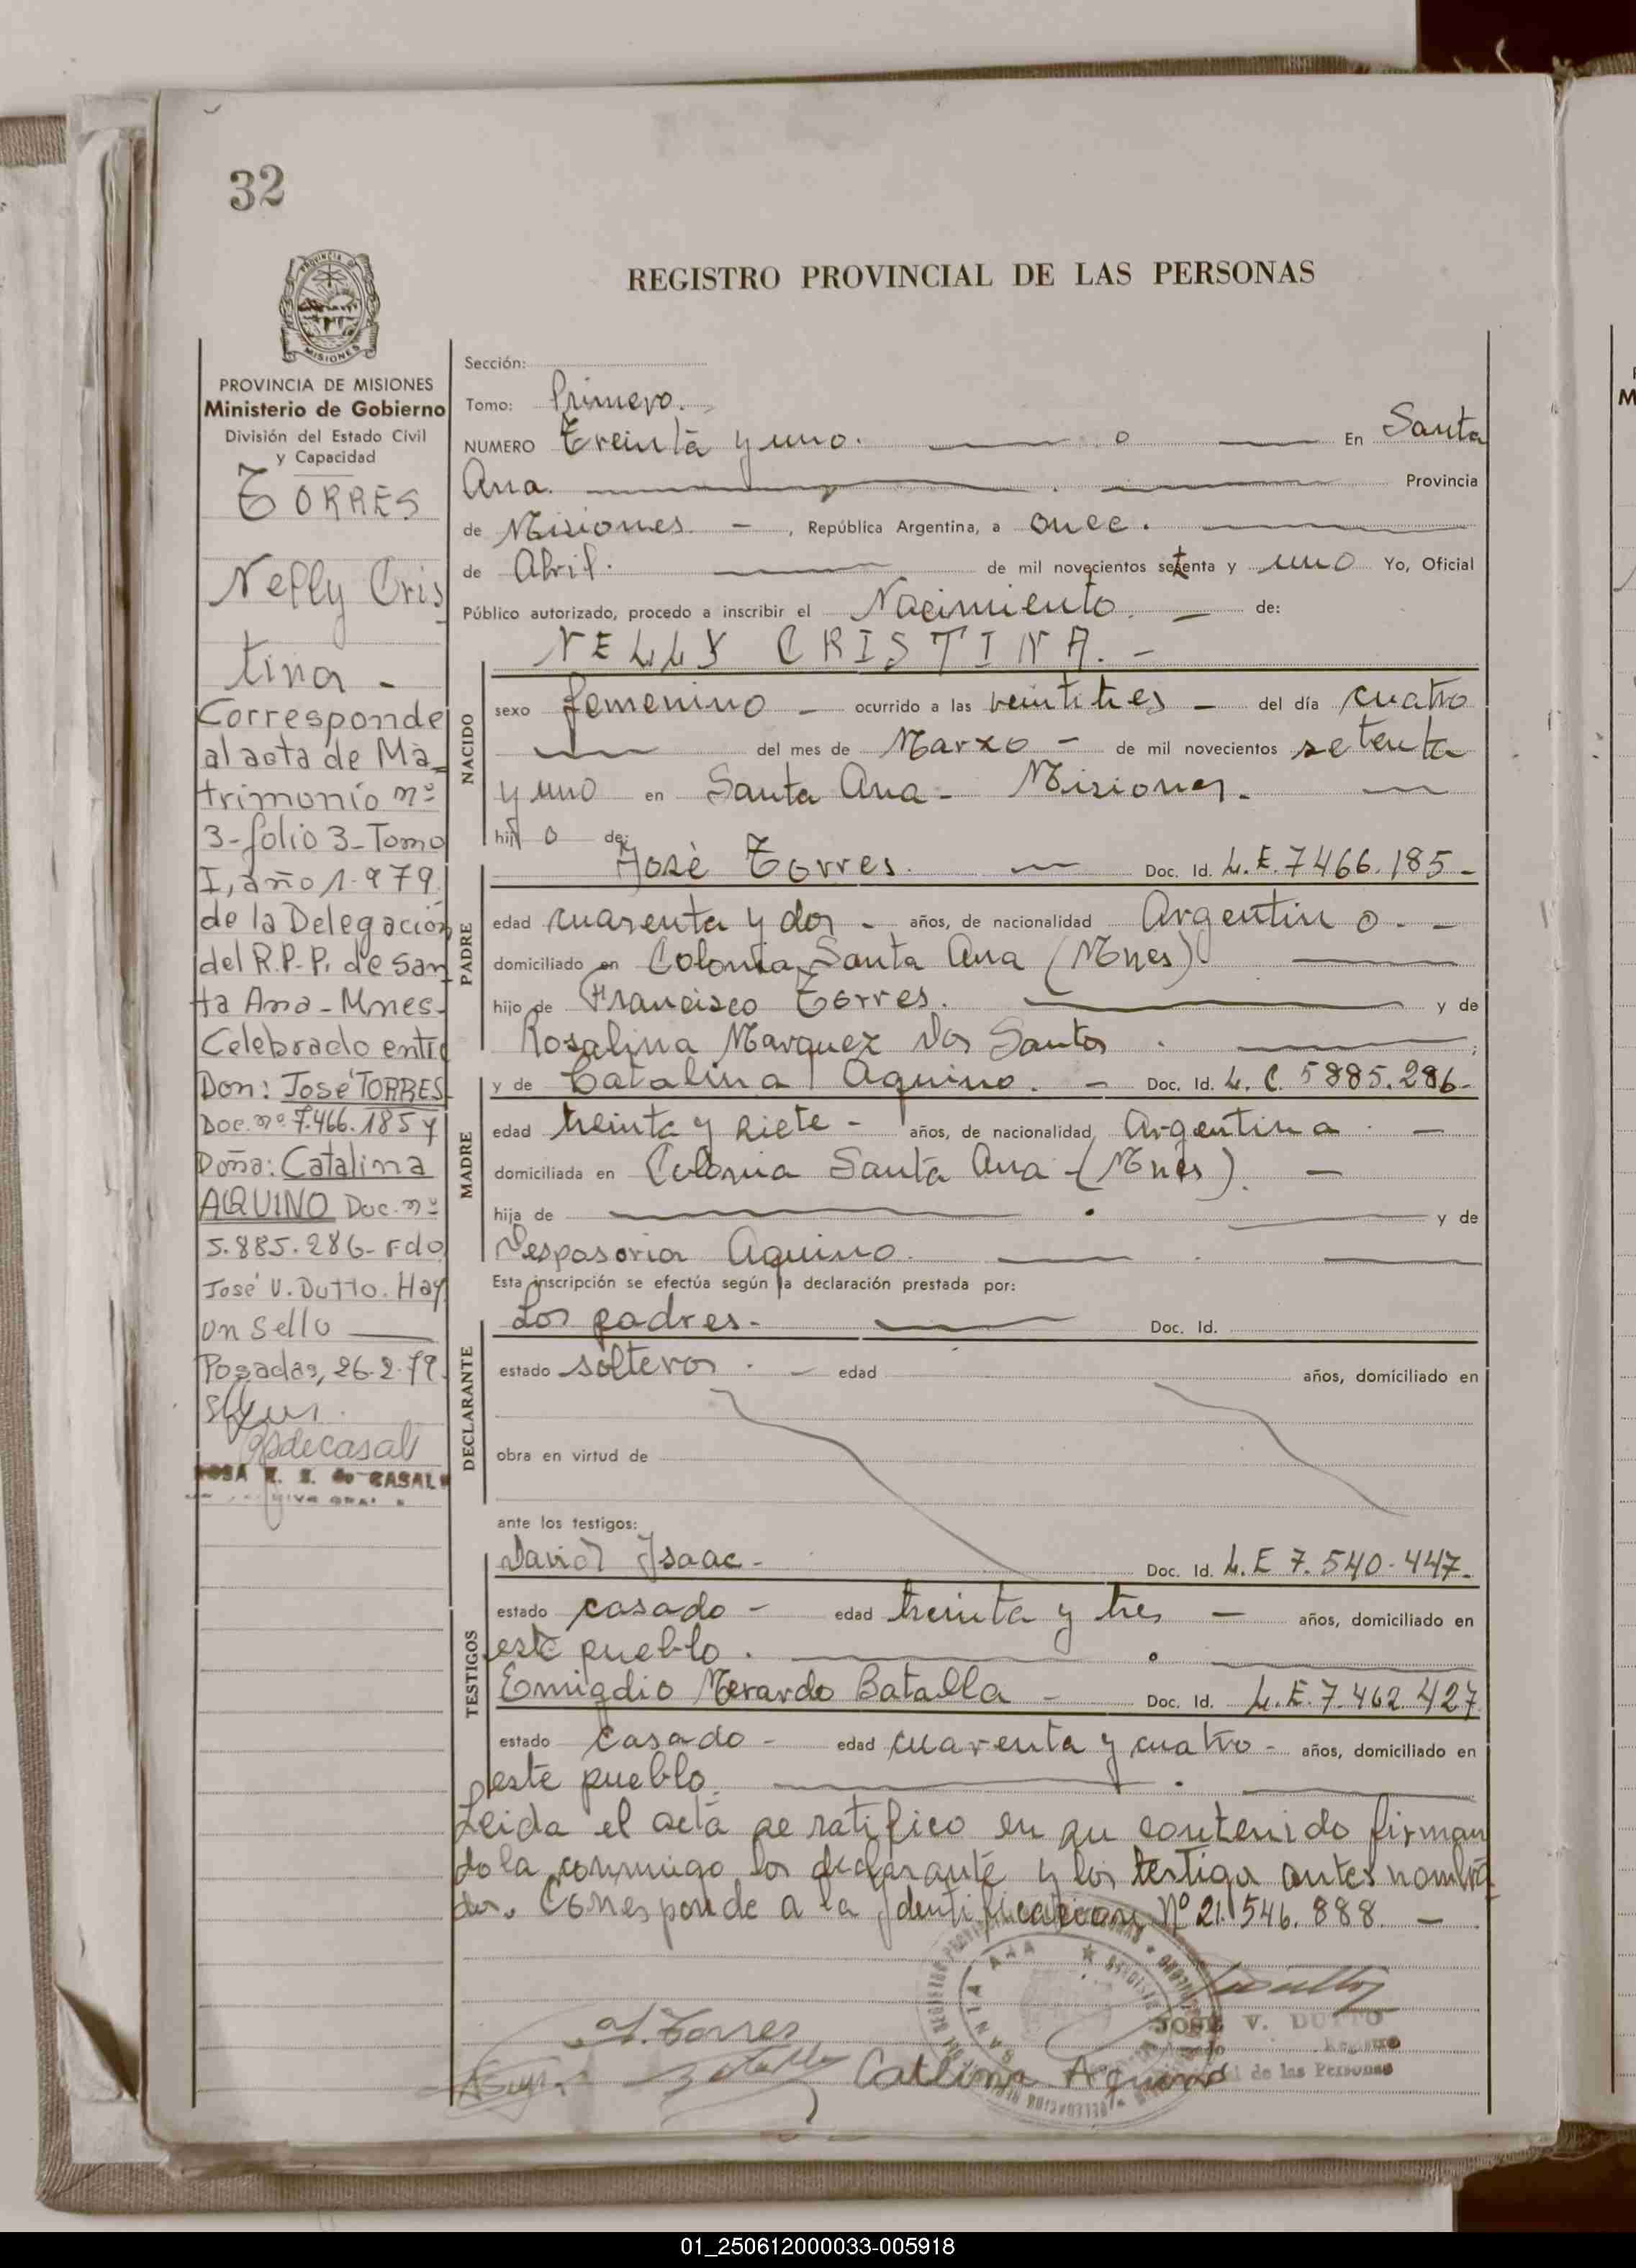 32
REGISTRO PROVINCIAL DE LAS PERSONAS
PROVINCIA DE MISIONES
Ministerio de Gobierno
División del Estado Civil
y Capacidad
TORRES
Nelly Cris
tina -
Corresponde
al acta de Ma_
trimonio nº
3-folio 3-Tomo
I, año 1.979
de la Delegación
del R.P.P. de San
ta Ana - Mnes-
Celebrado entre
Don: José TORRES
Doc. nº 7.466.185 y
Doña: Catalina
AQUINO Doc. nº
5.885.286- Fdo
José V. Dutto. Hay
un sello
Posadas, 26-2-79.
ROSA E. S. de CASAL
Sección:
Tomo: Primero.
NUMERO Treinta y uno. En Santa
Ana. Provincia
de Misiones - , República Argentina, a once.
de Abril. de mil novecientos setenta y uno Yo, Oficial
Público autorizado, procedo a inscribir el Nacimiento. - de:
NELLY CRISTINA. -
NACIDO
sexo femenino - ocurrido a las veintitres - del día cuatro
del mes de Marzo - de mil novecientos setenta
y uno en Santa Ana - Misiones.
hij o de:
PADRE
José Torres. Doc. Id. L.E. 7466.185 -
edad cuarenta y dos - años, de nacionalidad Argentin o. -
domiciliado en Colonia Santa Ana (Mnes)
hijo de Francisco Torres. y de
Rosalina Marquez Dos Santos . ;
MADRE
y de Catalina Aquino. - Doc. Id. L. C. 5885.286-
edad treinta y siete - años, de nacionalidad Argentina . -
domiciliada en Colonia Santa Ana - (Mnes). -
hija de . y de
Desposoria Aquino.
Esta inscripción se efectúa según la declaración prestada por:
DECLARANTE
Los padres. Doc. Id.
estado solteros . - edad años, domiciliado en
obra en virtud de
ante los testigos:
TESTIGOS
David Isaac - Doc. Id. L.E 7.540.447.
estado casado - edad treinta y tres - años, domiciliado en
este pueblo.
Emigdio Merardo Batalla - Doc. Id. L.E. 7.462.427
estado casado - edad cuarenta y cuatro - años, domiciliado en
este pueblo.
Leida el acta se ratifico en su contenido firman
dola conmigo los declarante y los testigo antes nombra
dos. Corresponde a la Identificacion Nº 21.546.888. -
J. Torres
Catlina Aquino
SANTA ANA
JOSE V. DUTTO
Registro
de las Personas
01_250612000033-005918